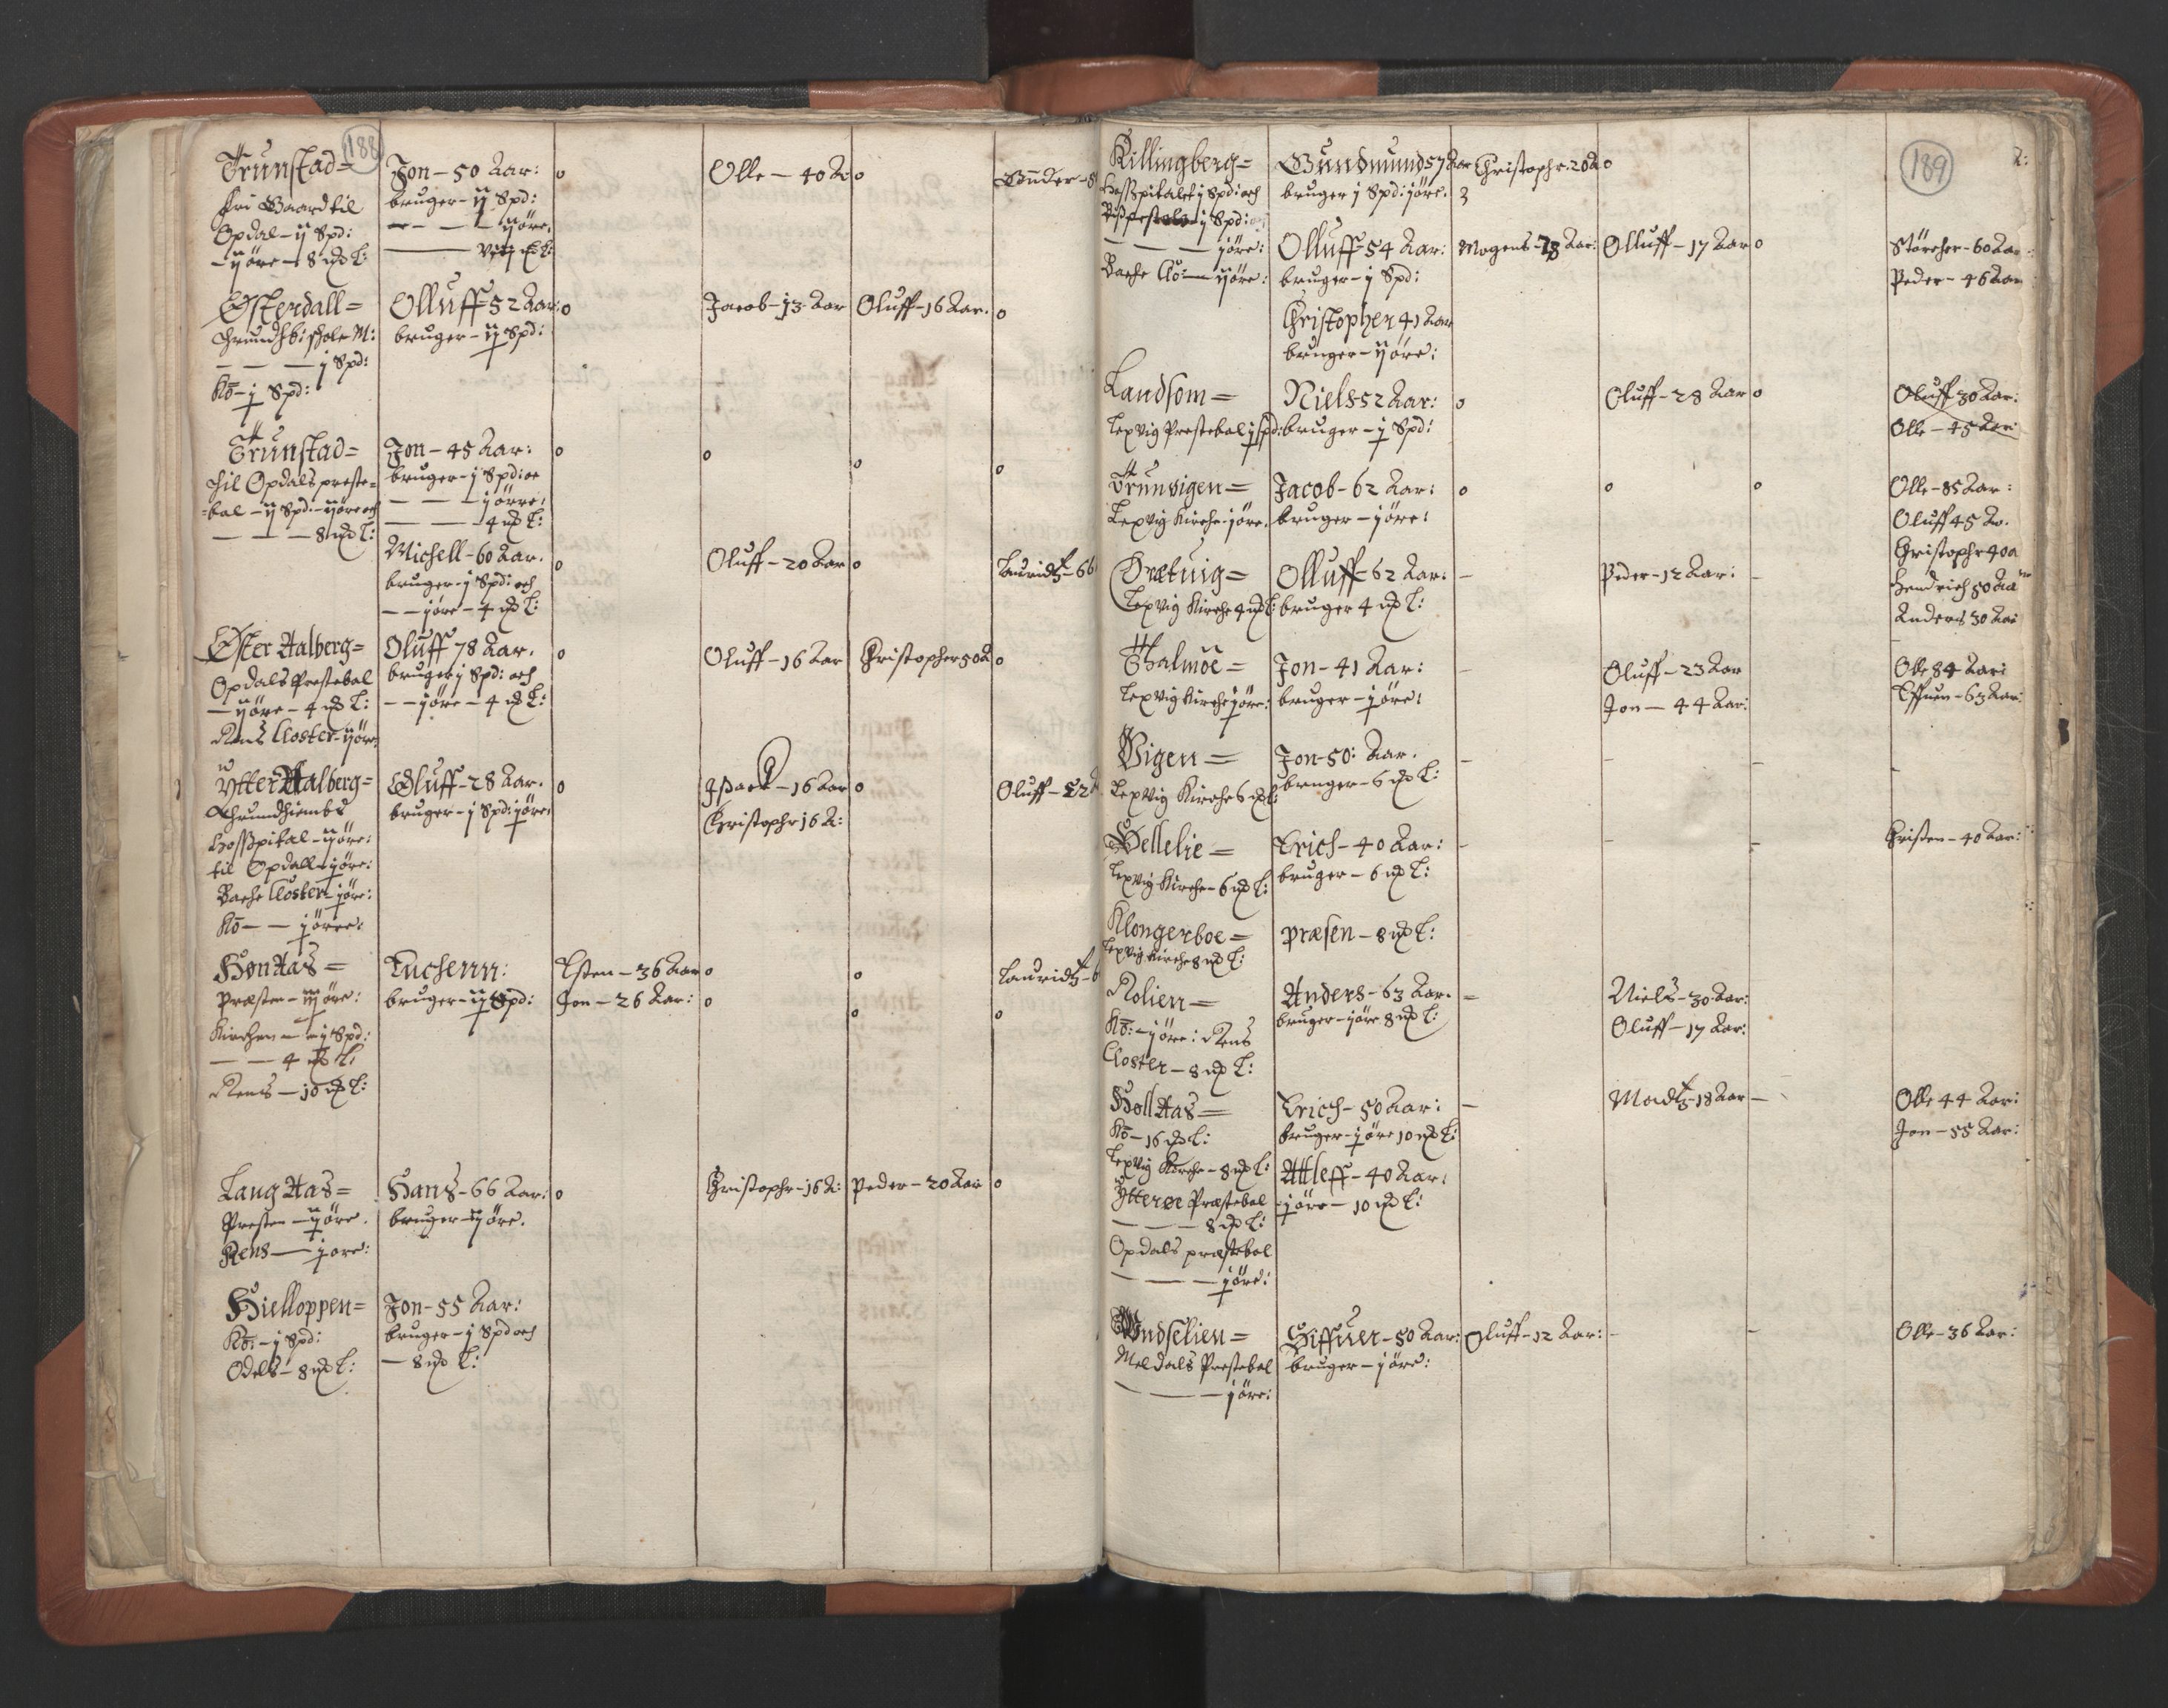 188
Trunstad=
fri Gaard til
Opdal - ij Spd:
- ijöre - 8 mk l:
Jon - 50 Aar:
bruger - ij Spd:
- - - ijöre,
o
Olle - 40 A:
o
Gunder - 8
Østerdall=
- - - j Spd:
Kō - j Spd:
Olluff - 52 Aar:
bruger - ij Spd:
o
Jacob - 13 Aar
Oluff - 16 Aar.
o
Trunstad=
Til Opdals preste=
=bol - ij Spd: - ijöre och
- - - 8 mk l:
Jon - 45 Aar:
bruger - j Spd: oc
- - - jörre,
- - - 4 mk l:
o
o
o
o
Michell - 60 Aar.
bruger - j Spd: och
- - jöre - 4 mk l:
o
Oluff - 20 Aar
o
Lauridtz - 66
Øster Aalberg=
Opdals Prestebol
- ijöre - 4 mk l:
Rens Closter - ijöre,
Oluff 78 Aar.
bruger j Spd: och
- - jöre - 4 mk l:
o
Oluff - 16 Aar
Christopher 50 A
o
Ytter Aalberg=
Thrundhiembs
Hosspital - ijöre:
til Opdall - jöre:
Bache Closter - jöre:
Kō - - jörre:
Oluff - 28 Aar.
bruger - j Spd: jöre,
o
- 16 Aar
Christophr 16 A:
o
Oluff - 52 A
Høn Aas=
Præsten - iij öre:
Kirchen - - j Spd:
- - 4 mk l:
Rens - 10 mk l:
bruger - ij Spd:
Esten - 36 Aar
Jon - 26 Aar:
o
o
o
o
Lauridtz - 6
o
Laug Aas=
Presten - ijöre.
Rens - jöre:
Hans - 66 Aar:
bruger - ijöre.
o
Christophr - 16 A:
Peder - 20 Aar
o
Hielloppen=
Kō: - j Spd:
Odels - 8 mk l:
Jon - 55 Aar:
bruger - j Spd och
- 8 mk l:
189
Killingberg=
Hosspitalet j Spd: och
j Spd:
- - - jöre:
Bache Clō: - ijöre:
Gundmund 57 Aar
bruger j Spd: jöre.
Christophr. 20 A
o
Olluff 54 Aar:
bruger - j Spd:
Mogens - 18 Aar:
Olluff - 17 Aar
o
Störcher - 60 Aar
Peder - 46 Aar
Christopher 41 Aar
bruger - ijöre:
Landsom=
Lexvig Prestebol j spd:
Niels 52 Aar:
bruger - j Spd:
o
Oluff - 28 Aar
o
Oluff 30 Aar:
Olle - 45 Aar
Trunvigen=
Lexvig Kirche jöre.
Jacob - 62 Aar:
bruger - jöre:
o
o
o
Olle - 85 Aar:
Oluff 45 Aa.
Christophr 40 A
Hendrich 50 Aar
Anders 30 Aar
Grætuig=
Lexvig Kirche 4 mk l:
Olluff - 62 Aar.
bruger 4 mk l:
-
Peder - 12 Aar:
-
Thalmoe=
Lexvig Kirche jöre:
Jon - 41 Aar:
bruger - jöre:
-
Oluff - 23 Aar
Jon - 44 Aar:
Olle 84 Aar:
Effuen - 63 Aar:
Vigen=
Lexvig Kirche 6 mk l:
Jon - 50: Aar.
bruger - 6 mk l:
-
-
-
-
Hellelie=
Lexvig Kirche - 6 mk l:
Erich - 40 Aar:
bruger - 6 mk l:
-
-
-
Christen - 40 Aar:
Klongerboe=
Lexvig Kirche 8 mk l:
præsen - 8 mk l:
Rolien=
Kō: - jöre: Rens
Closter - 8 mk l:
Anders - 63 Aar.
bruger - jöre 8 mk l:
=
Niels - 30 Aar:
Oluff - 17 Aar:
Holl Aas=
Kō - 16 mk l:
Lexvig Kirche - 8 mk l:
Ytterøe Præstebol
- - - 8 mk l:
Opdals præstebol
- - - jöre:
Erich - 50 Aar:
bruger - jöre 10 mk l:
-
Madtz - 18 Aar
-
Olle 44 Aar:
Jon - 55 Aar:
Attleff - 40 Aar.
jöre - 10 mk l:
Wndselien=
Meldals Prestebol
- - - jöre:
Siffuer - 50 Aar:
bruger - jöre:
Oluff - 12 Aar:
-
-
Olle - 36 Aar: